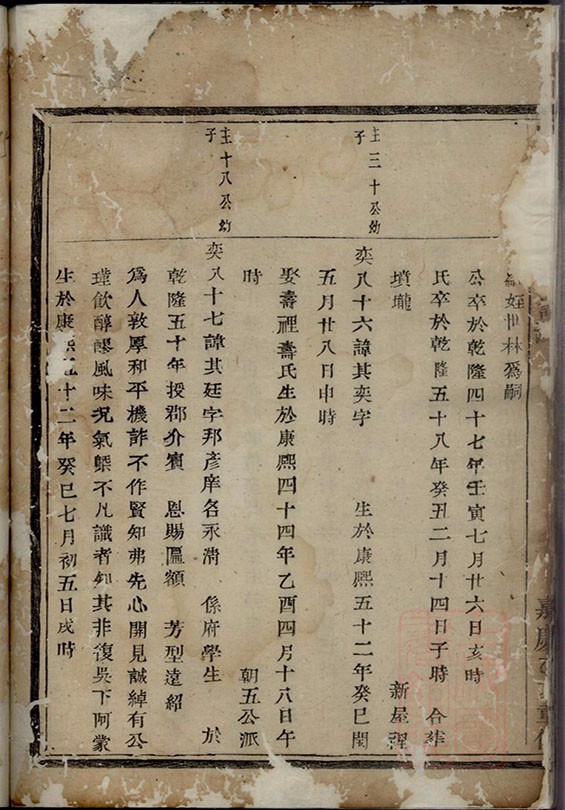 姪世林爲嗣
公卒於乾隆四十七年壬寅七月廿六日亥時
氏卒於乾隆五十八年癸丑二月十四日子時 合葬新屋裡
墳壠
主三十公幼子
奕八十六諱其奕字 生於康熙五十二年癸巳閏
五月廿八日申時
娶壽裡壽氏生於康熙四十四年乙酉四月十八日午
時 朝五公派
主十八公幼子
奕八十七諱其廷字邦彥庠名永清 係府學生 於
乾隆五十年授郡介賓 恩賜匾額 芳型遠紹
爲人敦厚和平機詐不作賢知弗先心開見誠綽有公
瑾飲醇醪風味況氣槩不凡識者知其非復吳下阿蒙
生於康熙五十二年癸巳七月初五日戌時
嘉慶
重修